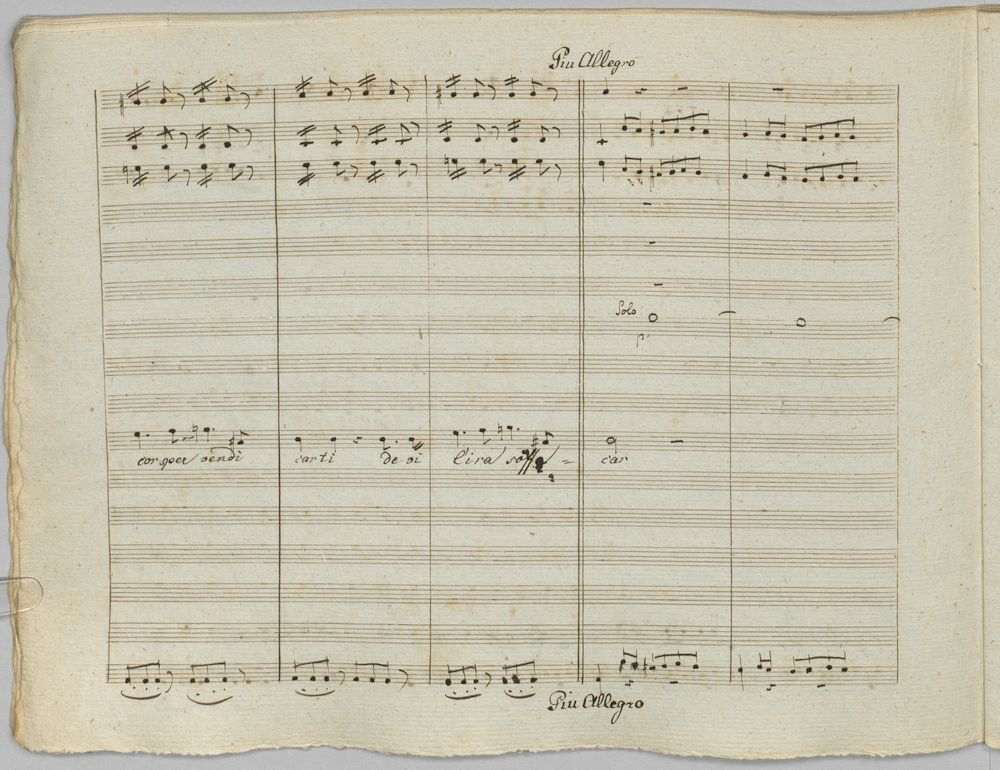 Piu Allegro
Solo
p.
cor per vendi carti de vi l'ira soffo = car
Piu Allegro